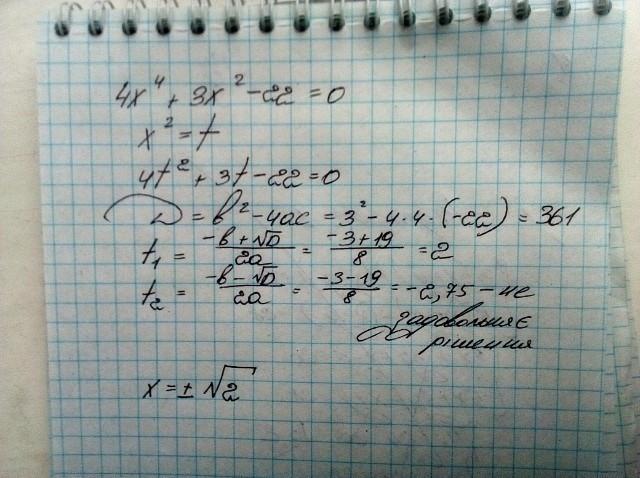 4x⁴ + 3x² - 22 = 0
x² = t
4t² + 3t - 22 = 0
D = b² - 4ac = 3² - 4·4·(-22) = 361
t₁ = (-b + √D)/2a = (-3 + 19)/8 = 2
t₂ = (-b - √D)/2a = (-3 - 19)/8 = -2,75 - не
задовольняє
рішення
x = ± √2